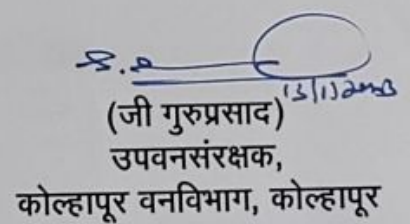 13/1/2023
(जी गुरुप्रसाद)
उपवनसंरक्षक,
कोल्हापूर वनविभाग, कोल्हापूर